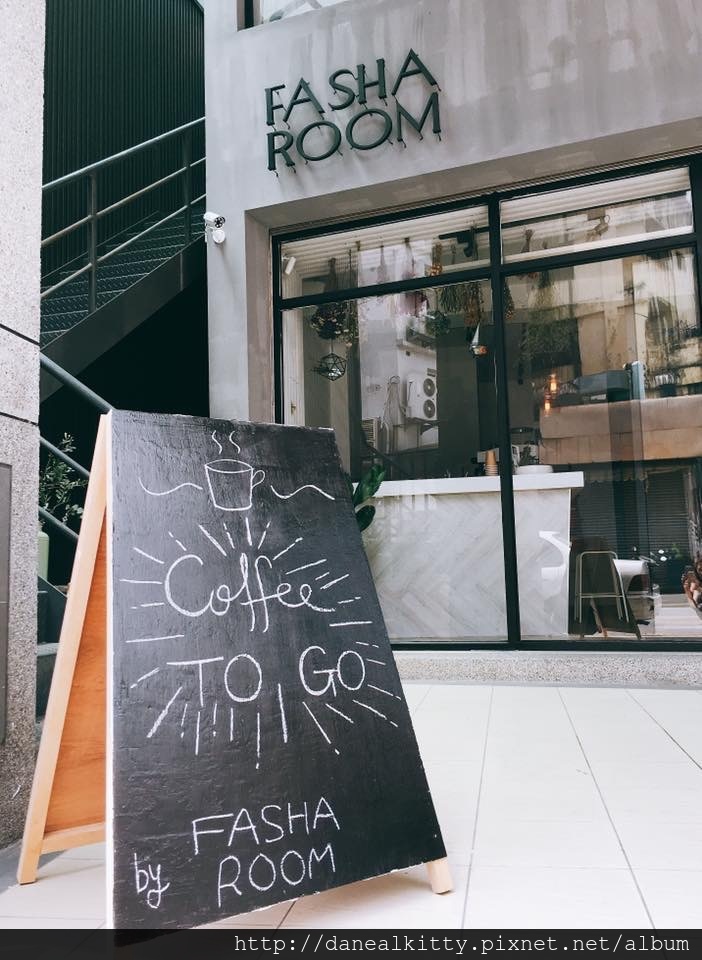 FASHA
ROOM
Coffee
TO GO
by FASHA
ROOM
http://danealkitty.pixnet.net/album